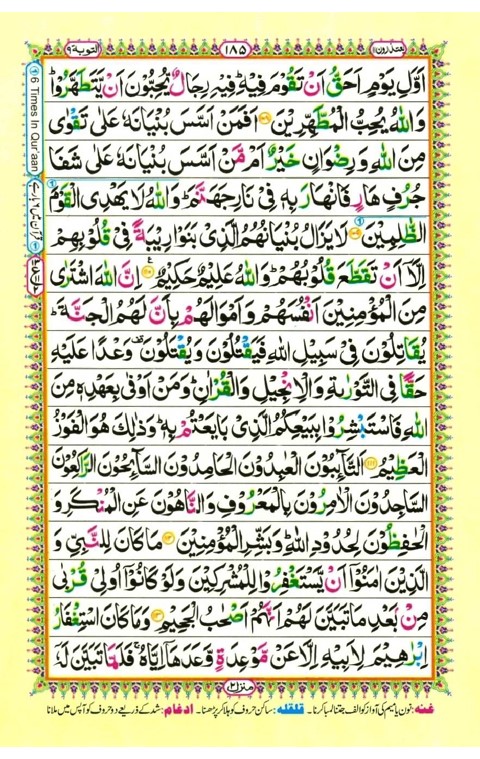 يعتذرون ١١
١٨٥
التوبة ٩
اَوَّلِ يَوْمٍ اَحَقُّ اَنْ تَقُوْمَ فِيْهِ ؕ فِيْهِ رِجَالٌ يُّحِبُّوْنَ اَنْ يَّتَطَهَّرُوْا ؕ
وَ اللّٰهُ يُحِبُّ الْمُطَّهِّرِيْنَ ﴿۱۰۸﴾ اَفَمَنْ اَسَّسَ بُنْيَانَهٗ عَلٰى تَقْوٰى
مِنَ اللّٰهِ وَ رِضْوَانٍ خَيْرٌ اَمْ مَّنْ اَسَّسَ بُنْيَانَهٗ عَلٰى شَفَا
جُرُفٍ هَارٍ فَانْهَارَ بِهٖ فِيْ نَارِ جَهَنَّمَ ؕ وَ اللّٰهُ لَا يَهْدِى الْقَوْمَ
الظّٰلِمِيْنَ ﴿۱۰۹﴾ لَا يَزَالُ بُنْيَانُهُمُ الَّذِيْ بَنَوْا رِيْبَةً فِيْ قُلُوْبِهِمْ
اِلَّاۤ اَنْ تَقَطَّعَ قُلُوْبُهُمْ ؕ وَ اللّٰهُ عَلِيْمٌ حَكِيْمٌ ﴿۱۱۰﴾ اِنَّ اللّٰهَ اشْتَرٰى
مِنَ الْمُؤْمِنِيْنَ اَنْفُسَهُمْ وَ اَمْوَالَهُمْ بِاَنَّ لَهُمُ الْجَنَّةَ ؕ
يُقَاتِلُوْنَ فِيْ سَبِيْلِ اللّٰهِ فَيَقْتُلُوْنَ وَ يُقْتَلُوْنَ ۫ وَعْدًا عَلَيْهِ
حَقًّا فِى التَّوْرٰىةِ وَ الْاِنْجِيْلِ وَ الْقُرْاٰنِ ؕ وَ مَنْ اَوْفٰى بِعَهْدِهٖ مِنَ
اللّٰهِ فَاسْتَبْشِرُوْا بِبَيْعِكُمُ الَّذِيْ بَايَعْتُمْ بِهٖ ؕ وَ ذٰلِكَ هُوَ الْفَوْزُ
الْعَظِيْمُ ﴿۱۱۱﴾ اَلتَّآئِبُوْنَ الْعٰبِدُوْنَ الْحَامِدُوْنَ السَّآئِحُوْنَ الرّٰكِعُوْنَ
السَّاجِدُوْنَ الْاٰمِرُوْنَ بِالْمَعْرُوْفِ وَ النَّاهُوْنَ عَنِ الْمُنْكَرِ وَ
الْحٰفِظُوْنَ لِحُدُوْدِ اللّٰهِ ؕ وَ بَشِّرِ الْمُؤْمِنِيْنَ ﴿۱۱۲﴾ مَا كَانَ لِلنَّبِيِّ وَ
الَّذِيْنَ اٰمَنُوْۤا اَنْ يَّسْتَغْفِرُوْا لِلْمُشْرِكِيْنَ وَ لَوْ كَانُوْۤا اُولِيْ قُرْبٰى
مِنْۢ بَعْدِ مَا تَبَيَّنَ لَهُمْ اَنَّهُمْ اَصْحٰبُ الْجَحِيْمِ ﴿۱۱۳﴾ وَ مَا كَانَ اسْتِغْفَارُ
اِبْرٰهِيْمَ لِاَبِيْهِ اِلَّا عَنْ مَّوْعِدَةٍ وَّعَدَهَاۤ اِيَّاهُ ۚ فَلَمَّا تَبَيَّنَ لَهٗۤ
6 Times In Qur'aan
منزل ٢
غنه: نون یا میم کی آواز کو الف جتنا لمبا کرنا۔ قلقله: ساکن حروف کو ہلا کر پڑھنا۔ ادغام: شد کے ذریعے دو حروف کو آپس میں ملانا